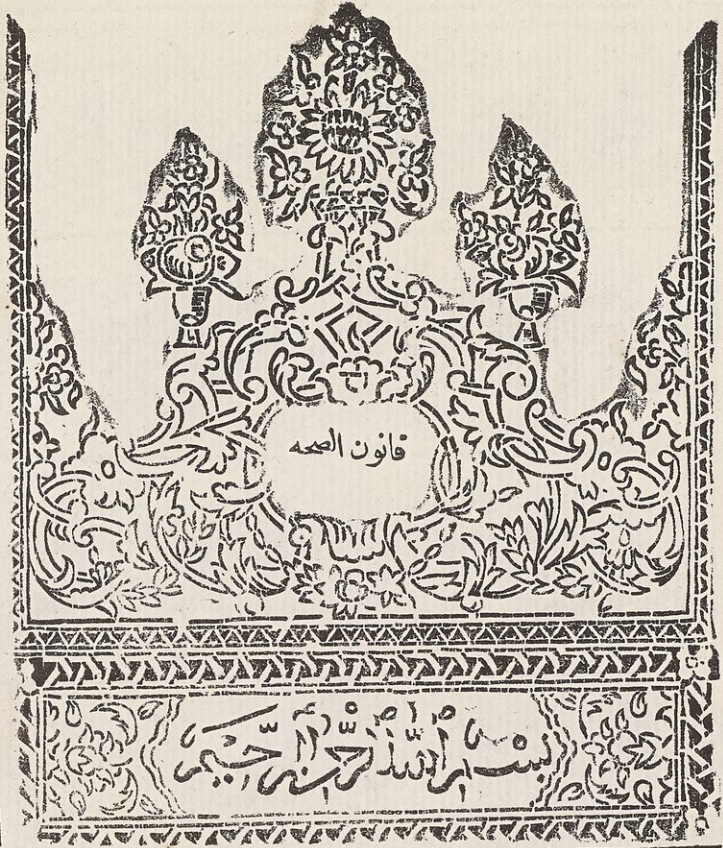 قانون الصحه
بسم الله الرحمن الرحيم